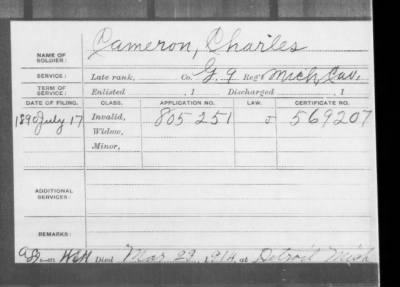 NAME OF SOLDIER: Cameron, Charles
SERVICE: Late rank, Co. G. 9 Reg't Mich, Cav.
TERM OF SERVICE: Enlisted , 1 Discharged , 1
DATE OF FILING. CLASS. APPLICATION NO. LAW. CERTIFICATE NO.
1890 July 17 Invalid, 805251 J 569207
Widow,
Minor,
ADDITIONAL SERVICES:
REMARKS:
Died Mar 29, 1914, at Detroit Mich